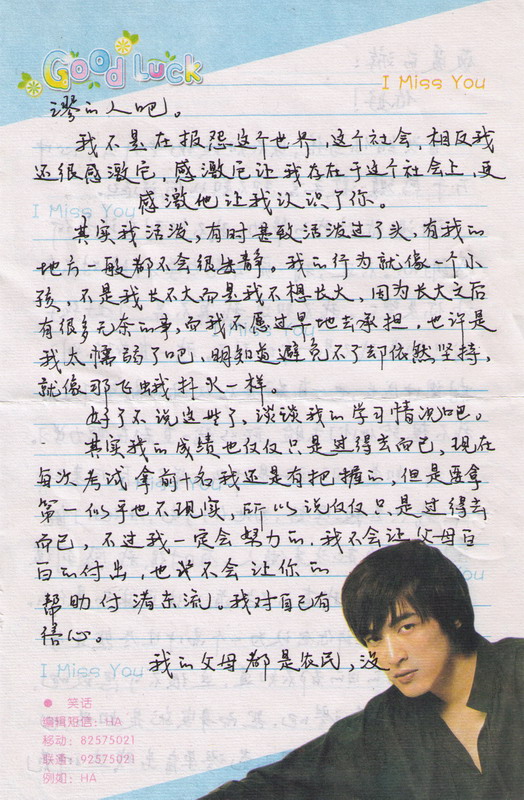 Good Luck
I Miss You
谬的人吧。
我不是在报怨这个世界,这个社会,相反我
还很感激它,感激它让我存在于这个社会上,更
I Miss You
感激他让我认识了你。
其实我活泼,有时甚致活泼过了头,有我的
地方一般都不会很安静。我的行为就像一个小
孩,不是我长不大而是我不想长大,因为长大之后
有很多无奈的事,而我不愿过早地去承担,也许是
我太懦弱了吧,明知道避免不了却依然坚持,
就像那飞蛾扑火一样。
好了不说这些了,谈谈我的学习情况吧。
其实我的成绩也仅仅只是过得去而已,现在
每次考试拿前十名我还是有把握的,但是要拿
第一似乎也不现实,所以说仅仅只是过得去
而已,不过我一定会努力的,我不会让父母白
白的付出,也学不会让你的
帮助付渚东流。我对自己有
信心。
I Miss You
我的父母都是农民,没
笑话
编辑短信:HA
移动:82575021
联通:92575021
例如:HA